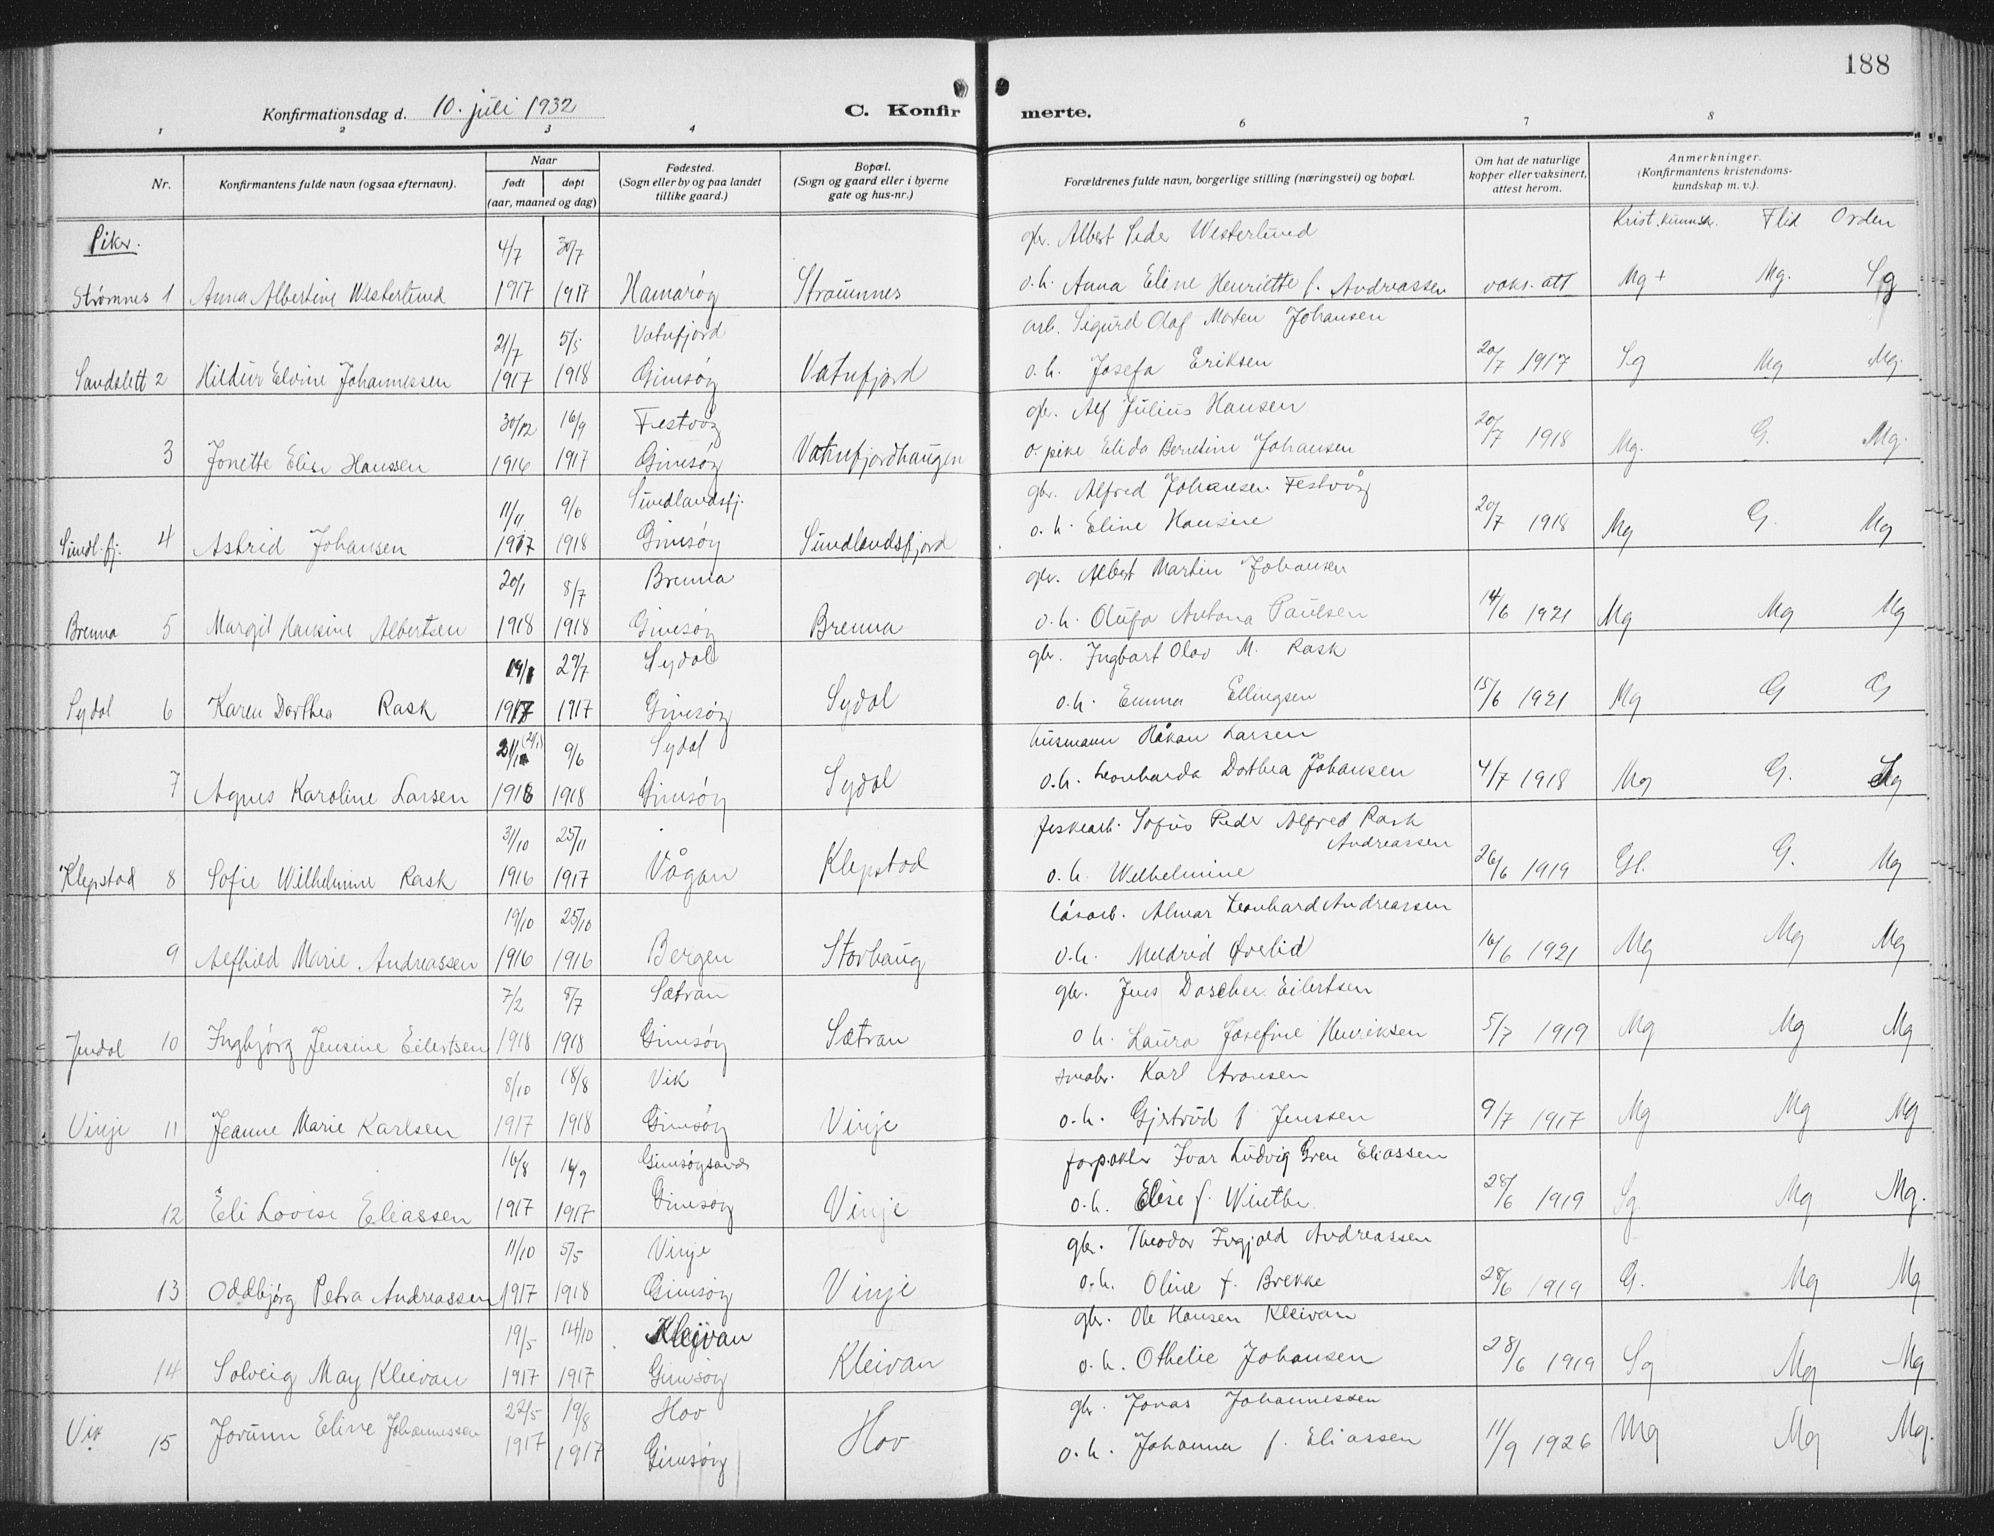 188
Konfirmationsdag d. 10. juli 1932
C. Konfirmerte.
1 2 3 4 6 7 8
Nr.
Konfirmantens fulde navn (ogsaa efternavn).
Naar
født døpt
(aar, maaned og dag)
Fødested.
(Sogn eller by og paa landet
tillike gaard.)
Bopæl.
(Sogn og gaard eller i byerne
gate og hus-nr.)
Forældrenes fulde navn, borgerlige stilling (næringsvei) og bopæl.
Om hat de naturlige
kopper eller vaksinert,
attest herom.
Anmerkninger.
(Konfirmantens kristendoms-
kundskap m. v.).
Piker.
Krist. kunnsk. Flid Orden
4/7 30/7 gbr. Albert Peder Westerlund
Strømnes 1 Anna Albertine Westerlund 1917 1917 Hamarøy Straumnes o.h. Anna Eline Henriette f. Andreassen vaks. att Mg+ Mg. Sg
21/7 5/5 Vatnfjord arb. Sigurd Olaf Morten Johansen
Sandslett 2 Hildur Elvine Johannessen 1917 1918 Gimsøy Vatnfjord o.h. Josefa Eriksen 20/7 1917 Sg Mg Mg.
30/12 16/9 Festvåg gbr. Alf Julius Hansen
3 Jonette Elise Hanssen 1916 1917 Gimsøy Vatnfjordhaugen o. pike Elida Berntine Johansen 20/7 1918 Mg. G. Mg.
11/11 9/6 Sundlandsfj. gbr. Alfred Johansen Festvåg
Sundl.fj. 4 Astrid Johansen 1917 1918 Gimsøy Sundlandsfjord o.h. Eline Hansine 20/7 1918 Mg G. Mg
20/1 8/7 Brenna gbr. Albert Martin Johansen
Brenna 5 Margit Hansine Albertsen 1918 1918 Gimsøy Brenna o.h. Olufa Antona Paulsen 14/6 1921 Mg Mg Mg
19/1 29/7 Sydal gbr. Ingbart Olav M. Rask
Sydal 6 Karen Dorthea Rask 1917 1917 Gimsøy Sydal o.h. Emma Ellingsen 15/6 1921 Mg G G
(21/1) 9/6 Sydal husmann Håkan Larsen
7 Agnes Karoline Larsen 1918 1918 Gimsøy Sydal o.h. Leonharda Dorthea Johansen 4/7 1918 Mg G. Sg
31/10 25/11 fiskearb. Sofus Peder Alfred Rask
Andreassen
Klepstad 8 Sofie Wilhelmine Rask 1916 1917 Vågan Klepstad o.h. Welhelmine 26/6 1919 Gl. G. Mg
19/10 25/10 løsarb. Almar Leonhard Andreassen
9 Alfhild Marie Andreassen 1916 1916 Bergen Storhaug o.h. Meldrid Øverlid 16/6 1921 Mg Mg Mg
7/2 8/7 Sætran gbr. Jens Dascher Eilertsen
Jendal 10 Ingbjørg Jensine Eilertsen 1918 1918 Gimsøy Sætran o h. Laura Josefine Henriksen 5/7 1919 Mg Mg Mg
8/10 18/8 Vik smabr. Karl Aronsen
Vinje 11 Jeanne Marie Karlsen 1917 1918 Gimsøy Vinje o.h. Gjertrud f Jenssen 9/7 1917 Mg Mg Mg
16/8 16/9 Gimsøysand forpakter Ivar Ludvig Gren Eliassen
12 Eli Lovise Eliassen 1917 1917 Gimsøy Vinje o.h. Elise f. Winther 28/6 1919 Sg. Mg Mg.
11/10 5/5 Vinje gbr. Theodor Ingjald Andreassen
13 Oddbjørg Petra Andreassen 1917 1918 Gimsøy Vinje o.h. Oline f. Brekke 28/6 1919 G. Mg Mg
19/5 14/10 Kleivan gbr. Ole Hansen Kleivan
14 Solveig May Kleivan 1917 1917 Gimsøy Kleivan o.h. Othelie Johansen 28/6 1919 Sg Mg Mg
22/5 19/8 Hov gbr. Jonas Johannessen
Vik 15 Jorunn Eline Johannessen 1917 1917 Gimsøy Hov o.h. Johanna f. Eliassen 11/9 1926 Mg Mg Mg.